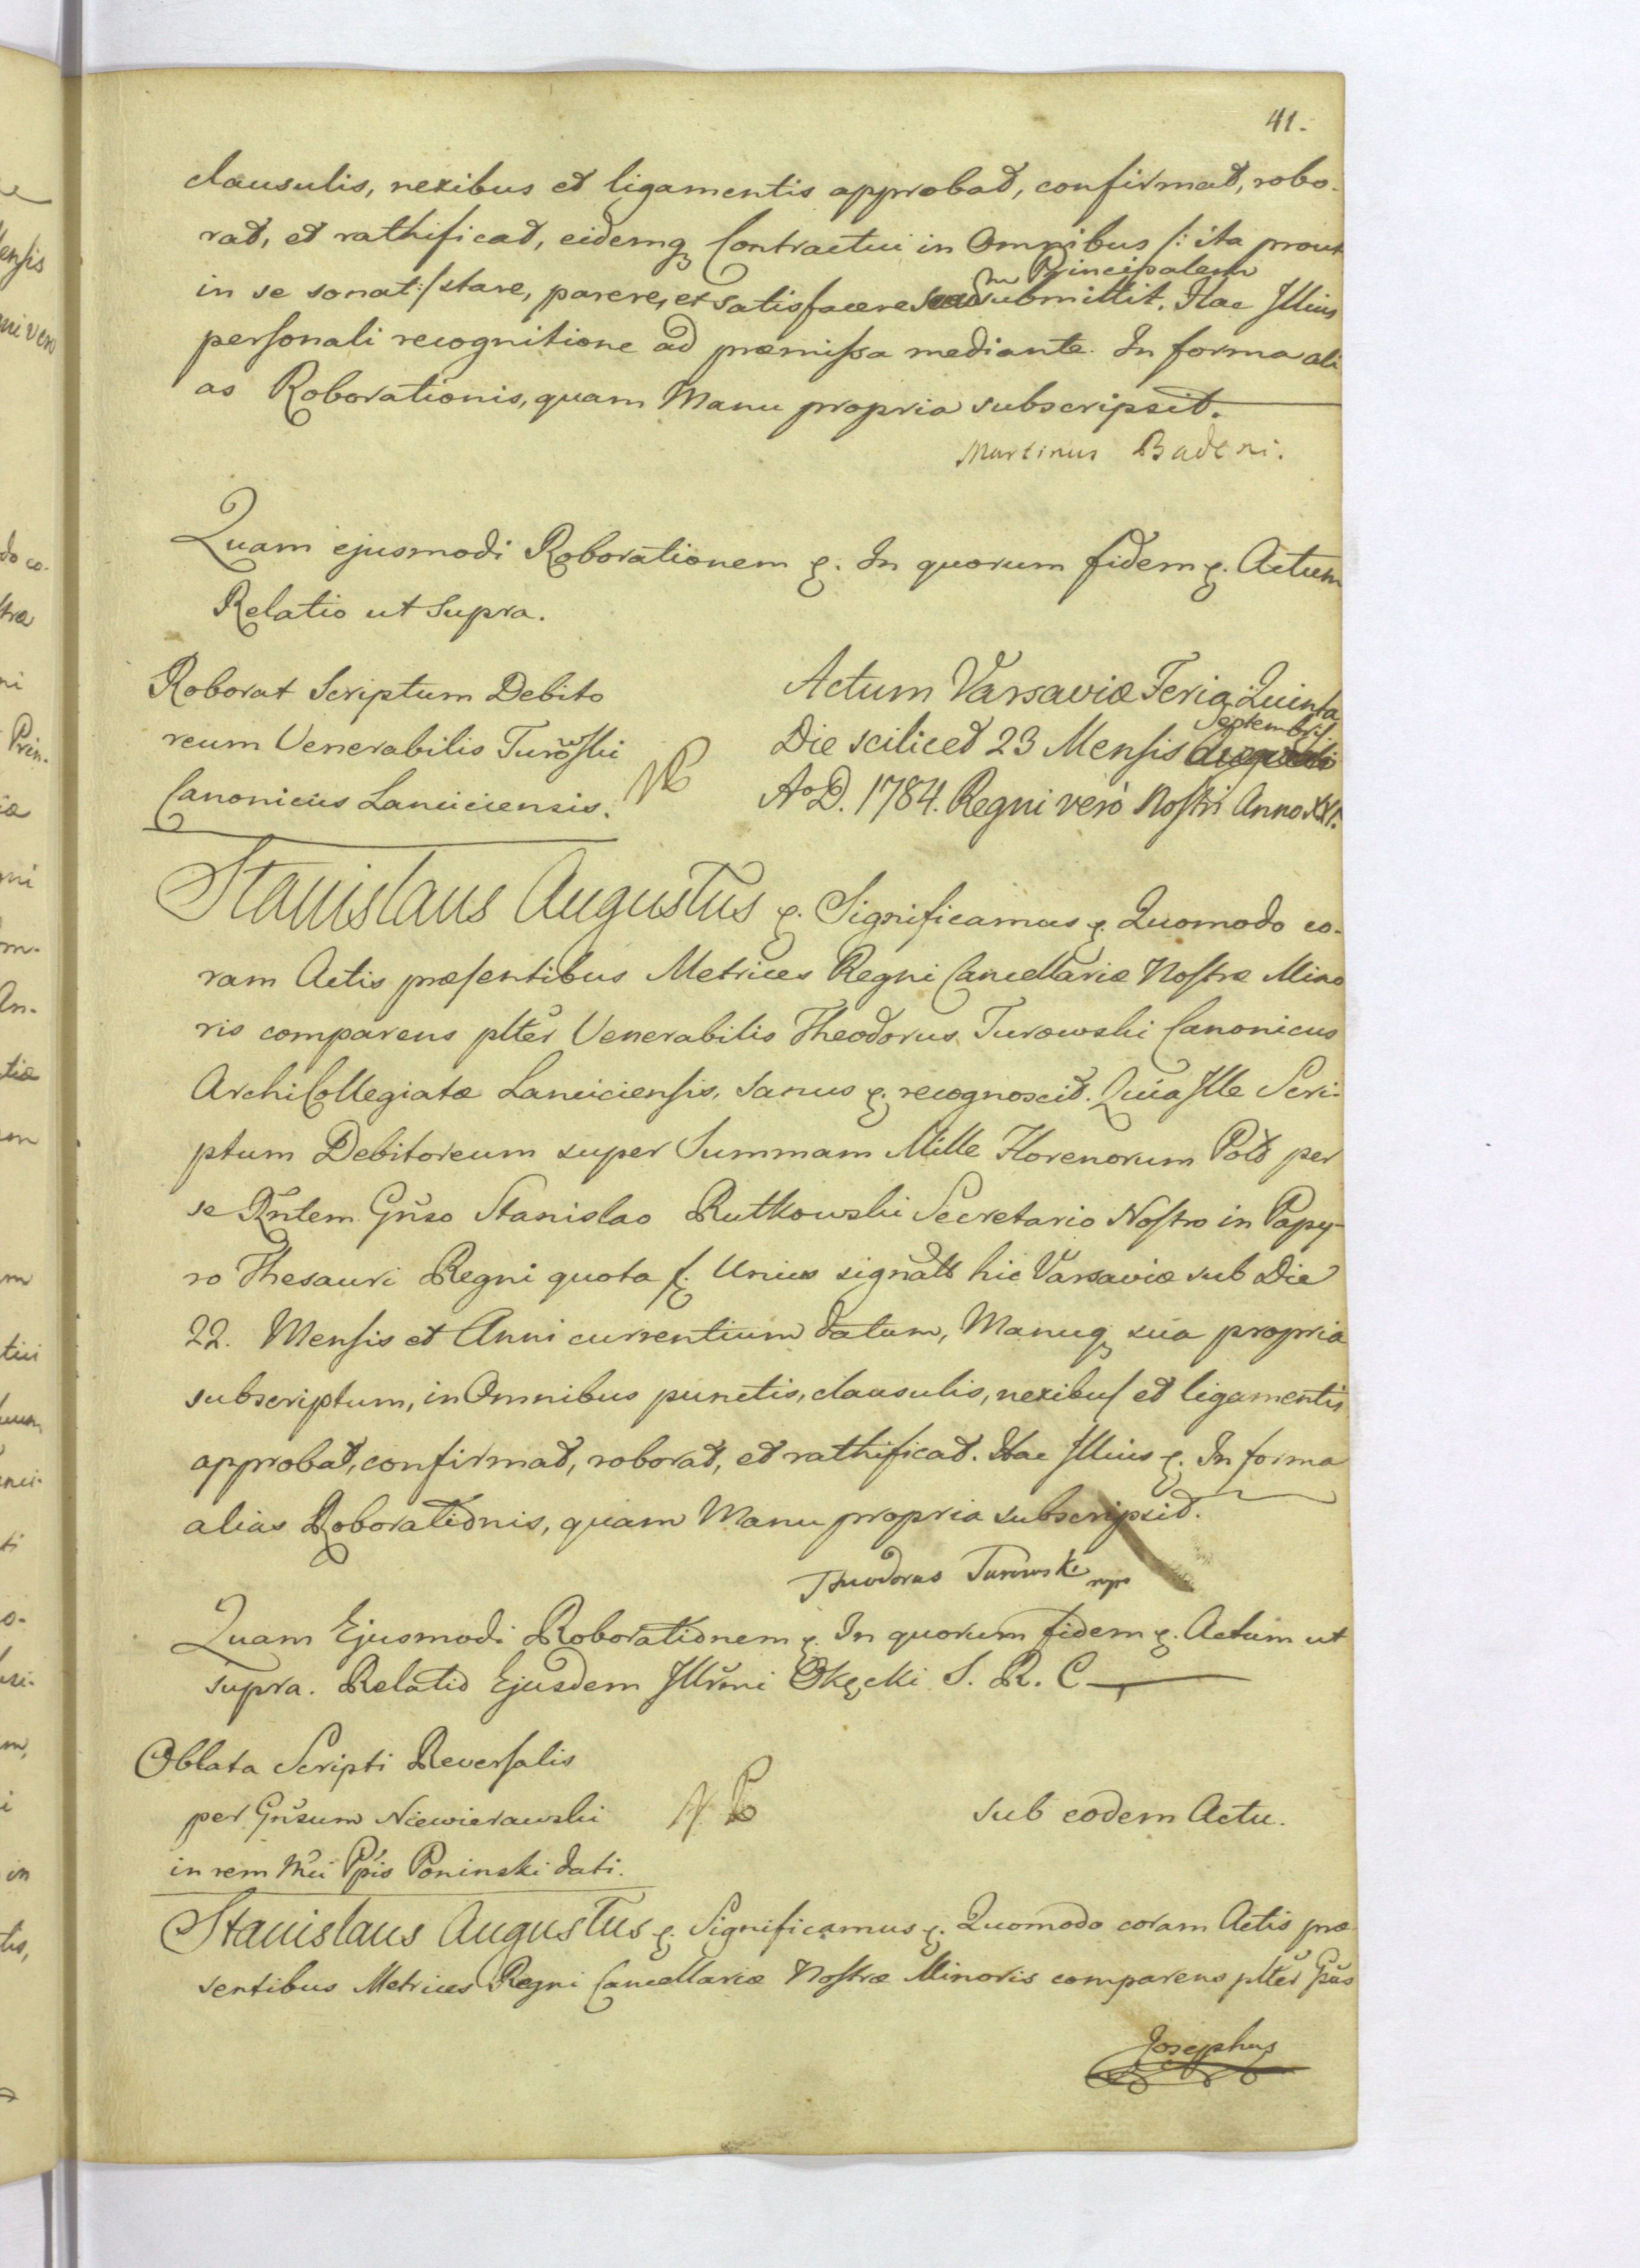 41.
clausulis, nexibus et ligamentis approbat, confirmat, robo-
rat, et rathificat, eidemq Contractui in Omnibus /: ita prout
in se sonat :/ stare, parere, et satisfacere suum Principalem submittit. Hac Illius
personali recognitione ad præmissa mediante. In forma ali
as Roborationis, quam Manu propria subscripsit.
Martinus Badeni.
Quam ejusmodi Roborationem &. In quorum fidem &. Actum
Relatio ut supra.
Roborat Scriptum Debito
reum Venerabilis Turowski
Canonicus Lanciciensis.
NB
Actum Varsaviæ Feria Quinta
Die scilicet 23 Mensis Septembris
Ao D. 1784. Regni verò Nostri Anno XXI.
Stanislaus Augustus &. Significamus &. Quomodo co-
ram Actis præsentibus Metrices Regni Cancellariæ Nostræ Mino
ris comparens plter Venerabilis Theodorus Turowski Canonicus
ArchiCollegiatæ Lanciciensis, sanus &. recognoscit. Quia Ille Scri-
ptum Debitoreum super Summam Mille Florenorum Pold per
se Gnso Stanislao Rutkowski Secretario Nostro in Papy-
ro Thesauri Regni quota f. Unius signato hic Varsaviæ sub Die
22. Mensis et Anni currentium datum, Manuq sua propria
subscriptum, in Omnibus punctis, clausulis, nexibus et ligamentis
approbat, confirmat, roborat, et rathificat. Hac Illius &. In forma
alias Roborationis, quam Manu propria subscripsit.
Theodorus Turowski mpr
Quam Ejusmodi Roborationem &. In quorum fidem &. Actum ut
supra. Relatio Ejusdem Illrmi Okęcki S. R. C
Oblata Scripti Reversalis
per Gnsum Niewierawski
in rem Ppis Poninski dati.
NB
sub eodem Actu.
Stanislaus Augustus &. Significamus &. Quomodo coram Actis præ
sentibus Metrices Regni Cancellariæ Nostræ Minoris comparens plter Gnus
Josephus